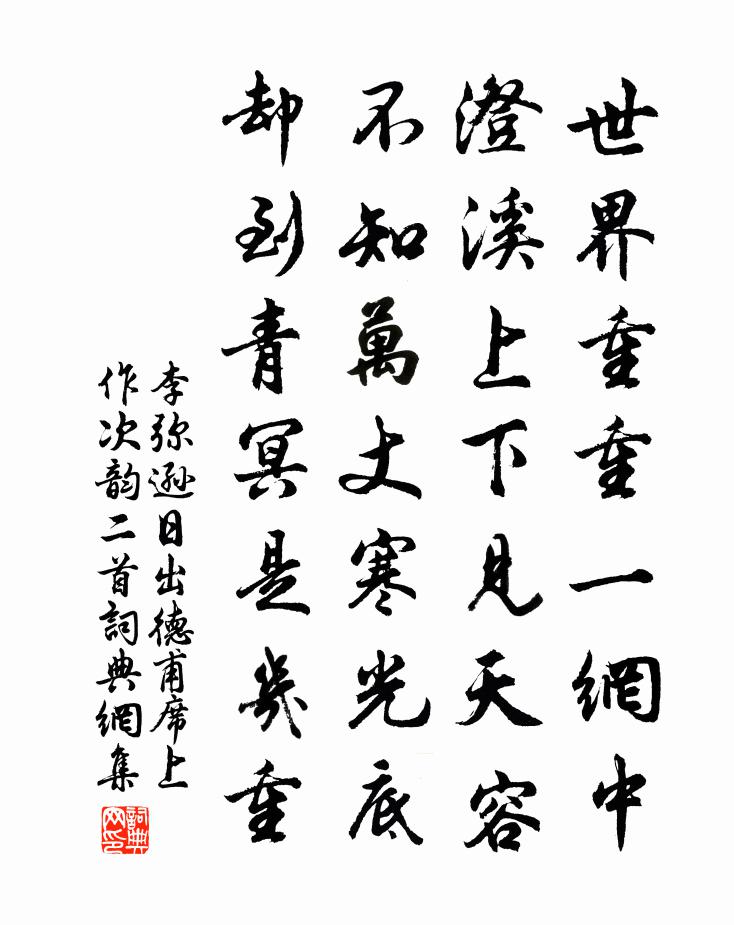 世界重重一網中
澄溪上下見天容
不知萬丈寒光底
却到青冥是幾重
李弥遜日出德甫席上
作次韵二首詞典網集
詞典网印